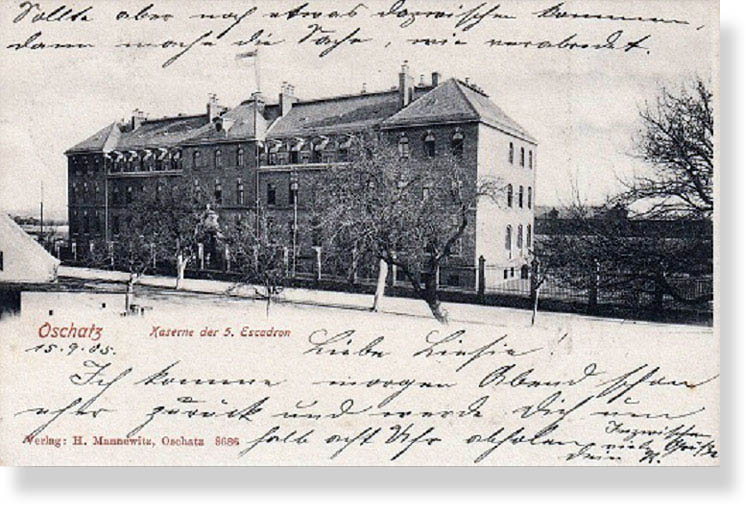 Sollte aber noch etwas dazwischen kommen,
dann mache die Sache, wie verabredet.
Oschatz
Kaserne der 5. Escadron
15.9.05.
Liebe Liesie!
Ich komme morgen Abend schon
eher zurück und werde Dich um
halb acht Uhr abholen
Inzwischen
viele Grüße
dein K.
Verlag: H. Mannewitz, Oschatz 8686